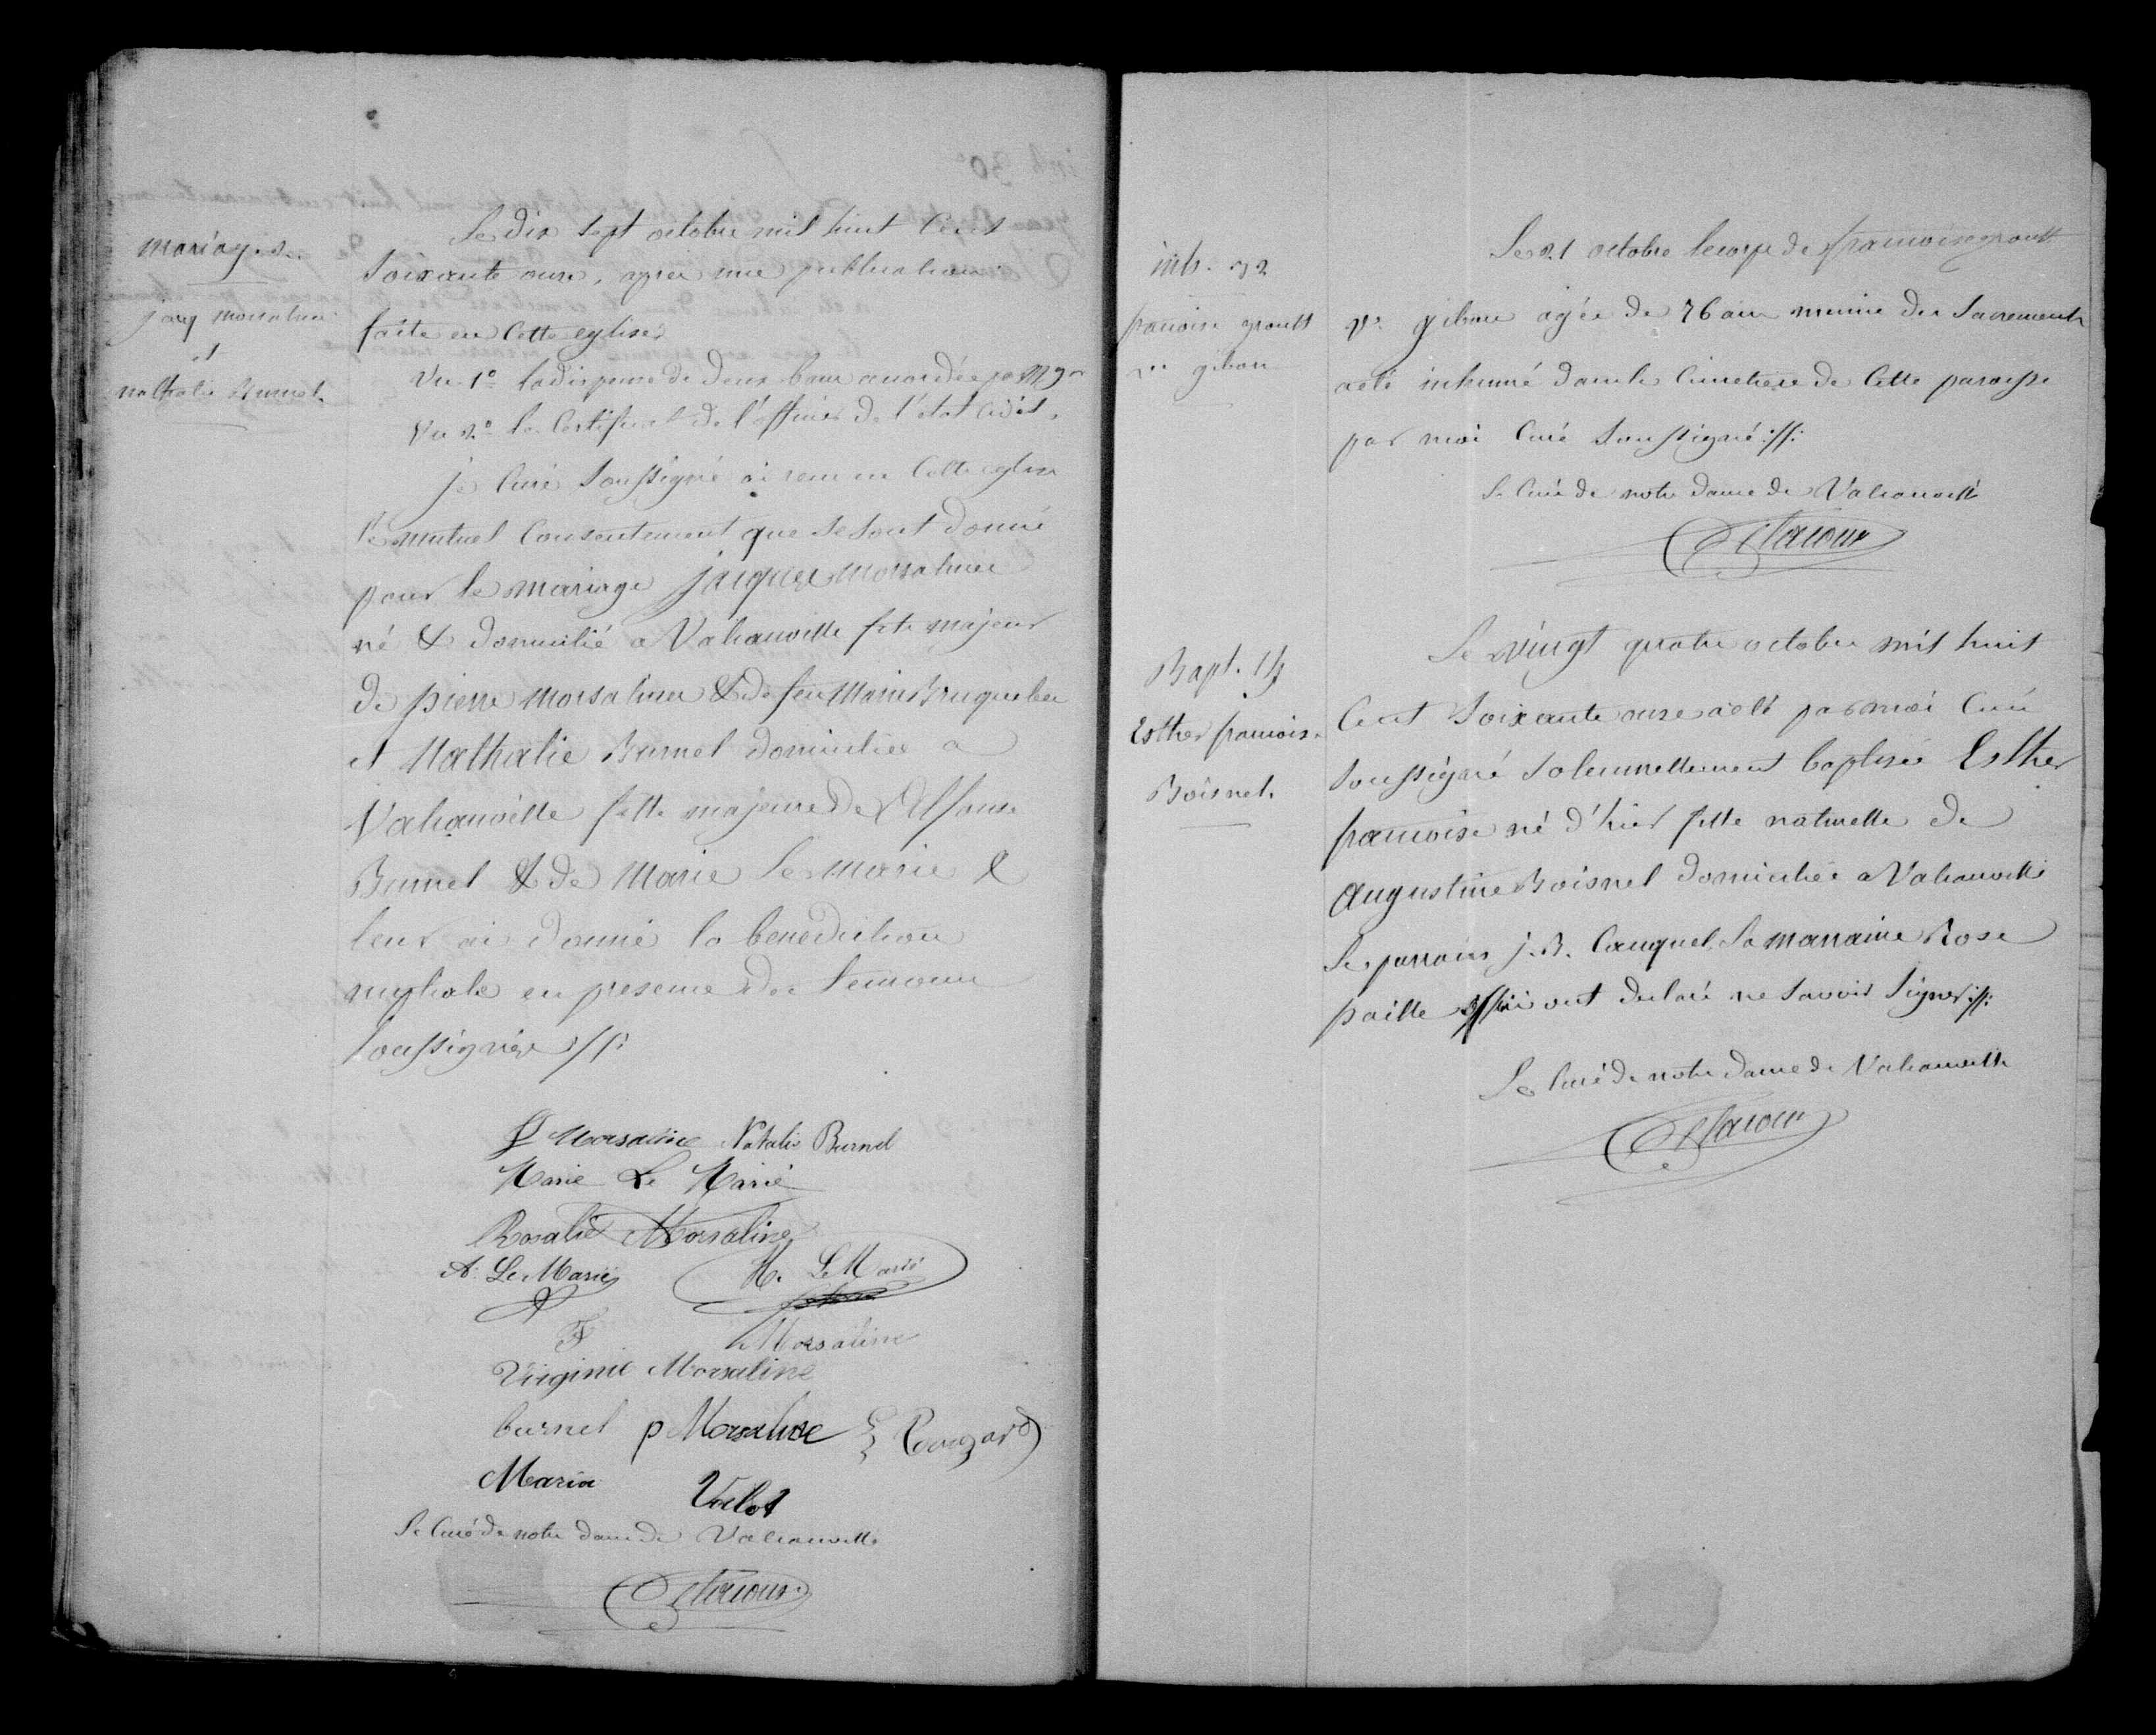 mariage
jacq morsaline
et
nathalie Burnel.
Le dix sept octobre mil huit Cent
Soixante onze, apres une publication
faite en Cette eglise
Vu 1° la dispense de deux bans accordée par Mgr
Vu 2° le Certificat de l'officier de l'état civil,
je Curé Soussigné ai reçu en Cette eglise
le mutuel Consentement que se sont donné
pour le mariage jacques morsaline
né & domicilié a Valcanville fils majeur
de pierre morsaline & de feu Marie Bruquebec
et Nathalie Burnel domiciliée a
Valcanville fille majeure de
Burnel & de Marie Le Marié &
leur ai donné la benediction
nuptiale en presence des temoins
soussignés
Morsaline Natalie Burnel
Marie Le Marié
Rosalie Morsaline
A. Le Marié H. Le Marié
F Morsaline
Virginie Morsaline
burnel p Morsaline
Maria Valot
Le Curé de notre dame de Valcanville
inh. 32
francoise groult
vve gibon
Le 21 octobre le corps de francoise groult
ve gibon agée de 76 ans munie des Sacrements
a eté inhumé dans le Cimetiere de Cette paroisse
par moi Curé Soussigné
Le Curé de notre dame de Valcanville
Bapt.
Esther francoise
Boisnel.
Le vingt quatre octobre mil huit
Cent Soixante onze a eté par moi Curé
Soussigné Solennellement baptisée Esther
francoise né d'hier fille naturelle de
Augustine Boisnel domiciliée a Valcanville
Le parrain J. B. Cauquel, La marraine Rose
paille qui ont declaré ne Savoir Signer
Le Curé de notre dame de Valcanville